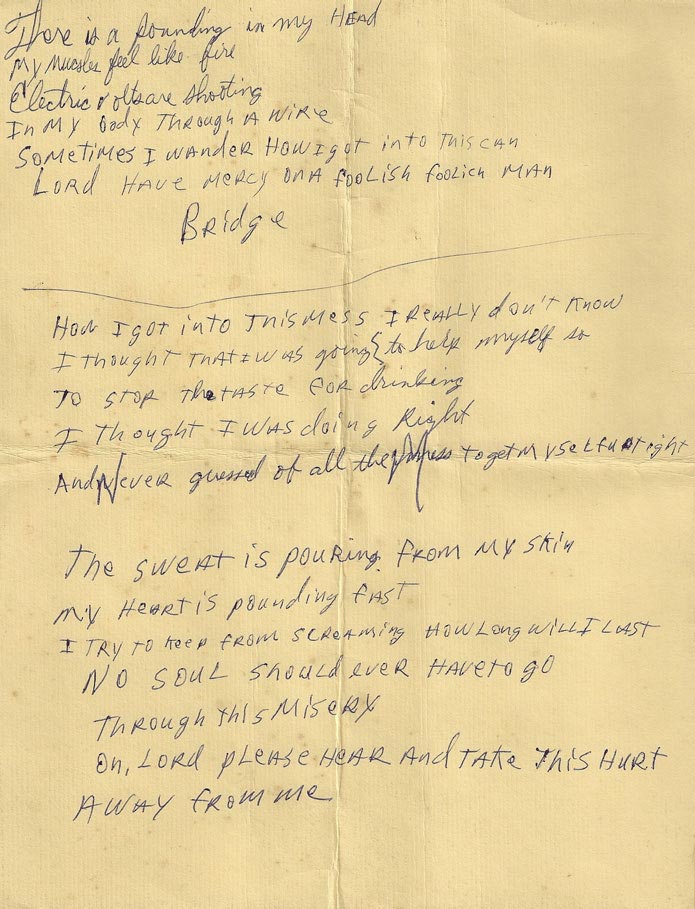 There is a pounding in my HEAD
My Muscles feel like fire
Electric volts are shooting
In MY body THROUGH A WIRE
SOMETIMES I WANDER HOW I got into THIS CAN
LORD HAVE MERCY ON A FOOLISH FOOLICH MAN
BRidge
How I got into THIS MESS I REALLY don't KNOW
I thought THAT I WAS going to help myself so
TO STOP The TASTE FOR drinking
I Thought I WAS doing Right
And Never guessed of all the to get MYSELF right
The SWEAT is POURing from MY SKIN
MY HEART is pounding FAST
I TRY TO KEEP FROM SCREAMING HOW LONG WILL I LAST
NO SOUL should ever HAVE to go
THROUGH this MISERY
OH, LORD PLEASE HEAR And TAKE THIS HURT
AWAY from me